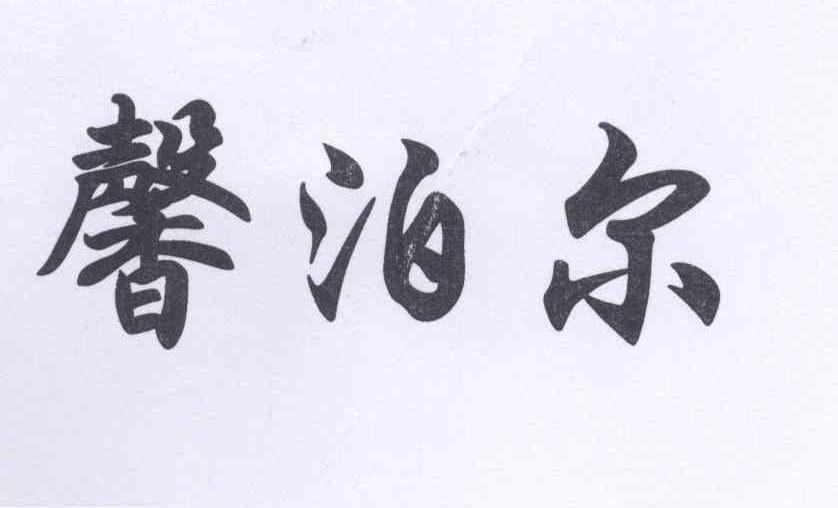 馨泊尔